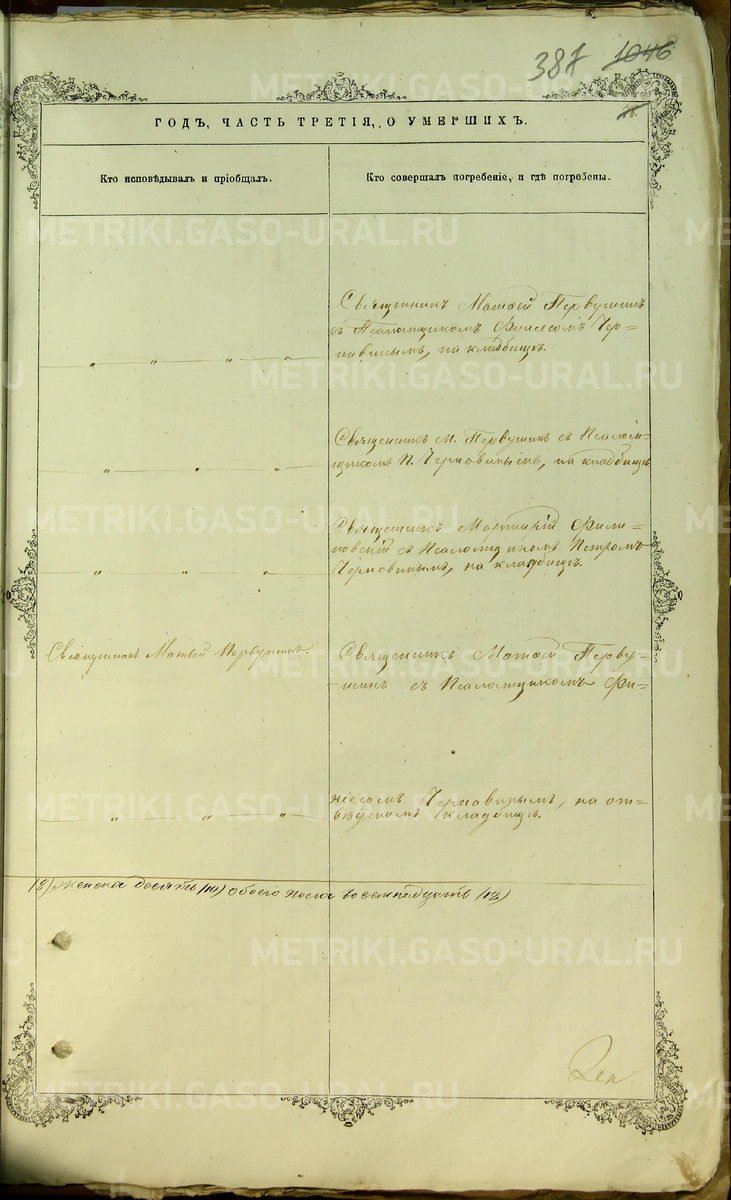 387 1046
ГОДЪ, ЧАСТЬ ТРЕТІЯ, О УМЕРШИХЪ.
Кто исповѣдывалъ и пріобщалъ.
Кто совершалъ погребеніе, и гдѣ погребены.
Священникъ Матѳей Первушинъ
съ Псаломщикомъ Финеесомъ Чер-
навинымъ, на кладбищѣ.
Священникъ М. Первушинъ съ Псалом-
щикомъ П. Чернавинымъ, на кладбищѣ
Священникъ
съ Псаломщикомъ Петромъ
Чернавинымъ, на кладбищѣ.
Священникъ Матѳей Первушинъ
Священникъ Матѳей Перву-
шинъ съ Псаломщикомъ Фи-
неесомъ Чернавинымъ, на от-
кладбищѣ.
(8) женска десять (10) обоего пола восемнадцать (18)
METRIKI.GASO-URAL.RU